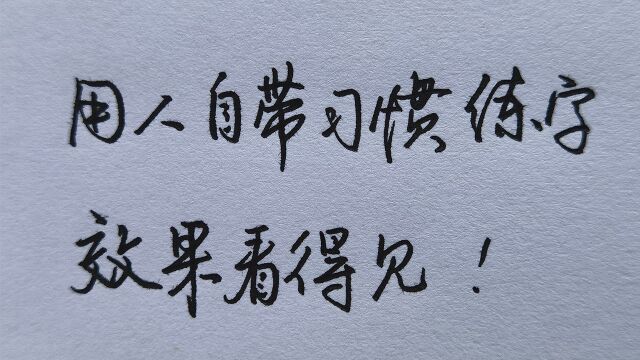 用人自带习惯练字
效果看得见！